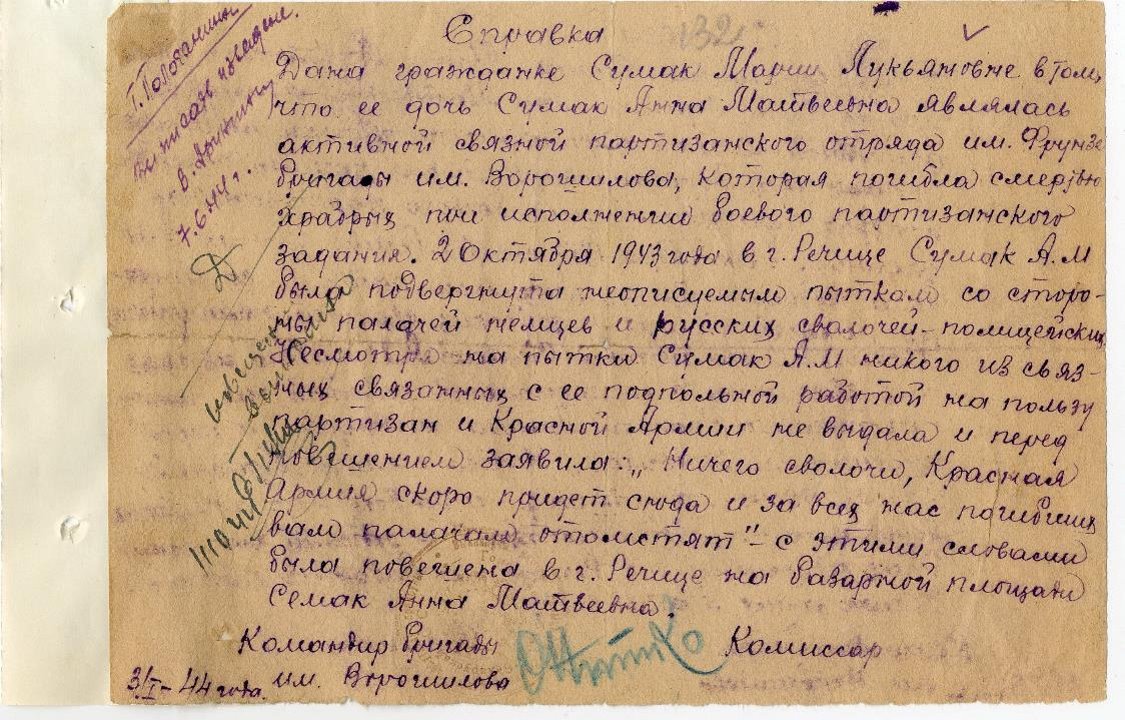 Справка
132
Т. Полочанины
выписать извещен.
7.6.44 г.
Дана гражданке Сумак Марии Лукьяновне в том,
что ее дочь Сумак Анна Матвеевна являлась
активной связной партизанского отряда им. Фрунзе
бригады им. Ворошилова, которая погибла смертью
храбрых при исполнении боевого партизанского
задания. 2 Октября 1943 года в г. Речице Сумак А.М
была подвергнута неописуемым пыткам со сторо-
ны палачей немцев и русских сволочей-полицейских
Несмотря на пытки Сумак А.М никого из связ-
ных связанных с ее подпольной работой на пользу
партизан и Красной Армии не выдала и перед
повешением заявила: „Ничего сволочи, Красная
Армия скоро придет сюда и за всех нас погибших
вам палачам отомстят" - с этими словами
была повешена в г. Речице на базарной площади
Семак Анна Матвеевна.
Командир бригады Комиссар
им. Ворошилова
3/I - 44 года.